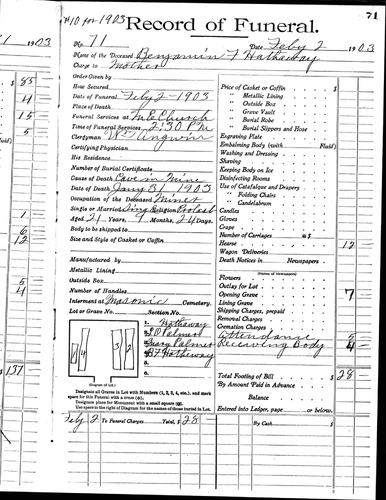 71
#10 for 1903
Record of Funeral.
1903
No. 71
Date Feby 2 1903
Name of the Deceased Benjamin F Hathaway
Charge to Mother
Order Given by
How Secured
Date of Funeral Feby 2 - 1903
Place of Death
Funeral Services at M E Church
Time of Funeral Services 2:30 PM
Clergyman Wm Angwin
Certifying Physician
His Residence
Number of Burial Certificate
Cause of Death Cave in Mine
Date of Death Jany 31 1903
Occupation of the Deceased Miner
Single or Married Sing Religion
Aged 21 Years, 9 Months, 24 Days
Body to be shipped to
Size and Style of Casket or Coffin
Manufactured by
Metallic Lining
Outside Box
Number of Handles
Interment at Masonic Cemetery.
Lot or Grave No. Section No.
1. Hathaway
2. S D Palmer
3. Mary Palmer
4. B F Hathaway
5.
6.
7.
8.
(Diagram of Lot.)
Designate all Graves in Lot with Numbers (1, 2, 3, etc.), and mark
space for this Funeral with a cross (x).
Designate place for Monument with a small square
Use space to the right of Diagram for the names of those buried in Lot.
Feby 2 To Funeral Charges Total, $ 28
Price of Casket or Coffin
" Metallic Lining
" Outside Box
" Grave Vault
" Burial Robe
" Burial Slippers and Hose
Engraving Plate
Embalming Body (with Fluid)
Washing and Dressing
Shaving
Keeping Body on Ice
Disinfecting Rooms
Use of Catafalque and Drapery
" Folding Chairs
" Candelabrum
Candles
Gloves
Crape
Number of Carriages @ $
Hearse 12
Wagon Deliveries
Death Notices in Newspapers
(Names of Newspapers)
Flowers
Outlay for Lot
Opening Grave 7
Lining Grave
Shipping Charges, prepaid
Removal Charges
Cremation Charges
Attendance 5
Receiving Body 4
Total Footing of Bill $ 28
By Amount Paid in Advance
Balance
Entered into Ledger, page or below.
By Cash $
85
4
15
5
1
6
12
5
4
$ 137